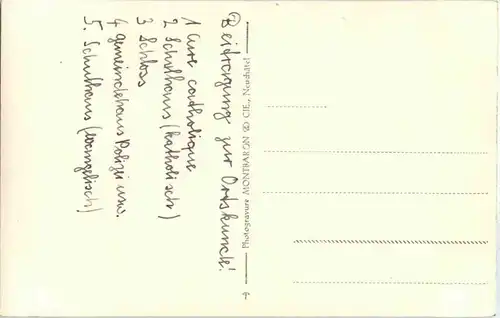 Beidragung zur Ortskunde!
1 Cure catholique
2 Schulhaus (katholisch)
3 Schloss
4 gemeindehaus Polizei usw.
5. Schulhaus (evangelisch)
Photogravure MONTBARON & CIE., Neuchâtel